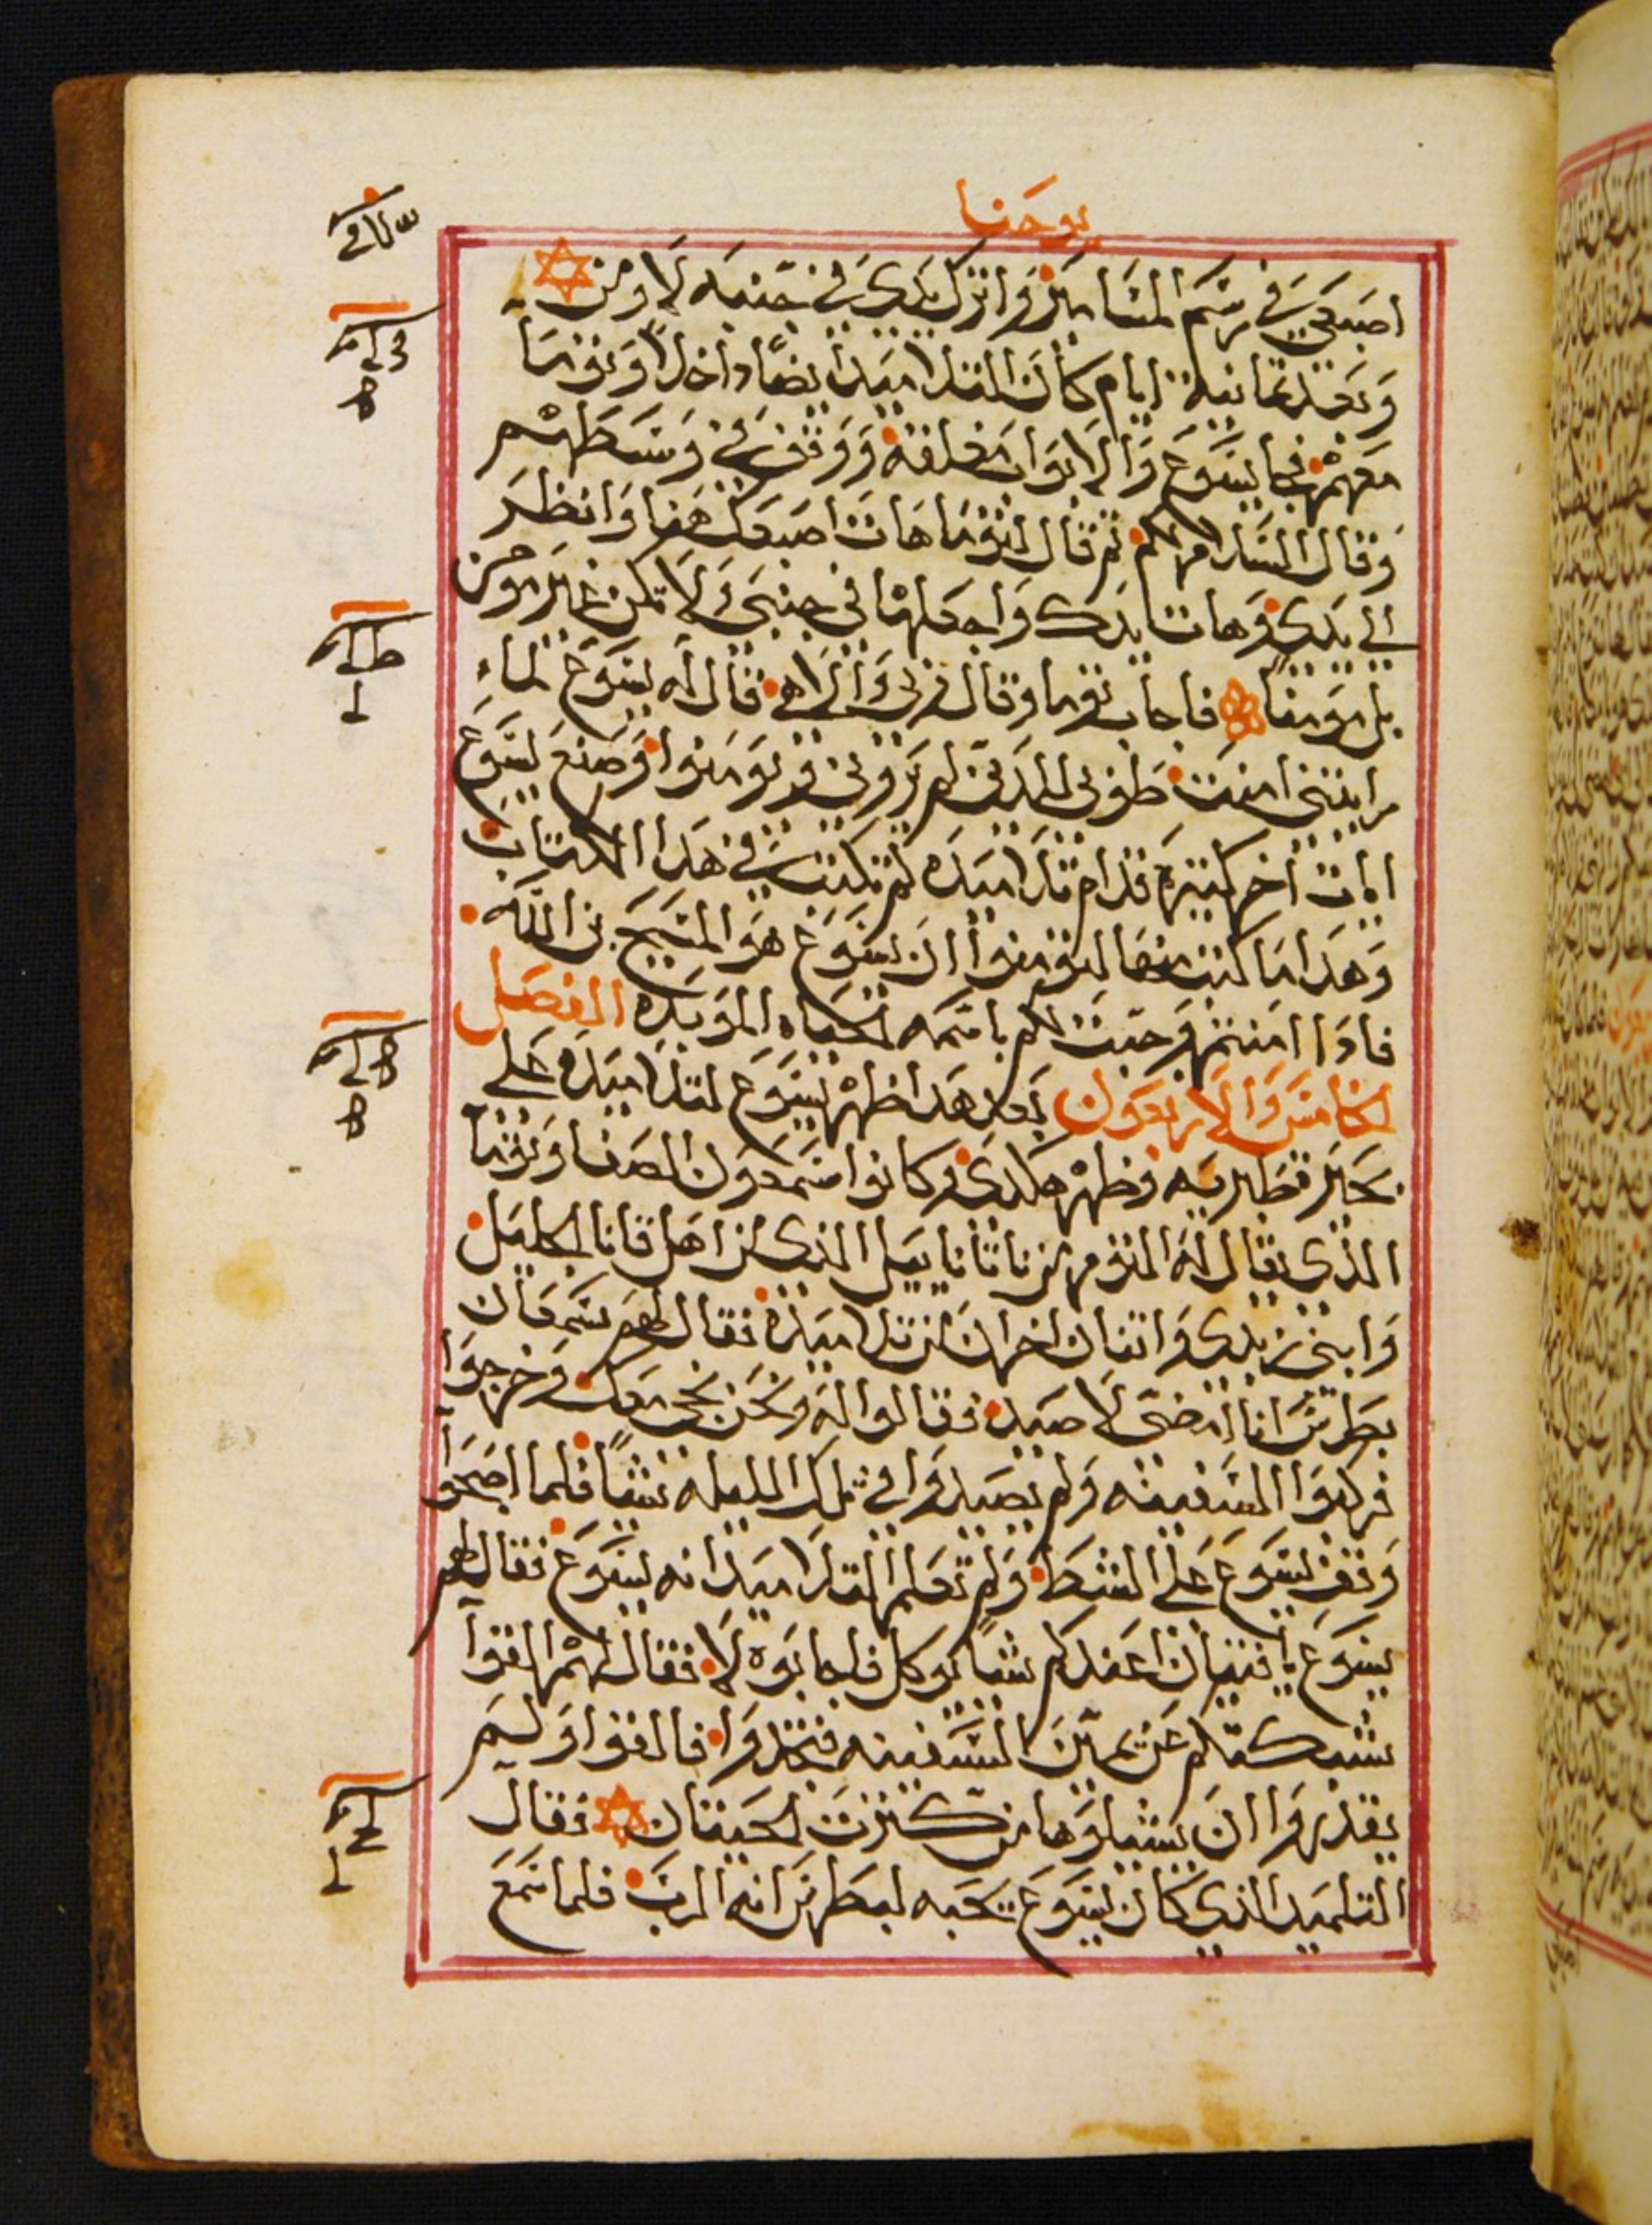 يوحنا
اصبعي في رسم المسامير واترك يدي في جنبه لا اومن
وبعد ثمانية ايام كان التلاميد ايضًا داخلًا وتوما
معهم فجا يسوع والابواب مغلقه ووقف في وسطهم
وقال السلام لكم ثم قال لتوما هات اصبعك هنا وانظر
الي يدي وهات يدك واجعلها في جنبي ولا تكن غير مومن
بل مومنا فاجاب توما وقال ربي والاهي قال له يسوع لما
رايتني امنت طوبي للدين لم يروني ويومنوا وصنع يسوع
ايات اخر كتيرة قدام تلاميده لم تكتب في هدا الكتاب
وهدا ما كتب منها لتومنوا ان يسوع هو المسيح بن الله
فادا امنتم وجبت لكم باسمه الحياه الموبده الفصل
الخامس والاربعون بعد هدا ظهر يسوع لتلاميده علي
بحير طبريه وظهر هكدي وكانوا سمعون الصفا وتوما
الدي يقال له التوم وناثاناييل الدي من اهل قانا الجليل
وابني زبدي واتنان اخران من تلاميده فقال لهم سمعان
بطرس انا امضي لاصيد فقالوا له ونحن نجي معك فخرجوا
فركبوا السفينه ولم يصيدوا في تلك الليله شيًا فلما اصبحوا
وقف يسوع علي الشط ولم تعلم التلاميد انه يسوع فقال لهم
يسوع يا فتيان اعندكم شيًا يوكل فاجابوه لا فقال لهم القوا
شبكتكم عن يمين السفينه فتجدوا فالقوا ولم
يقدروا ان يشيلوها من كثرت الحيتان فقال
التلميد الذي كان يسوع يحبه لبطرس انه الرب فلما سمع